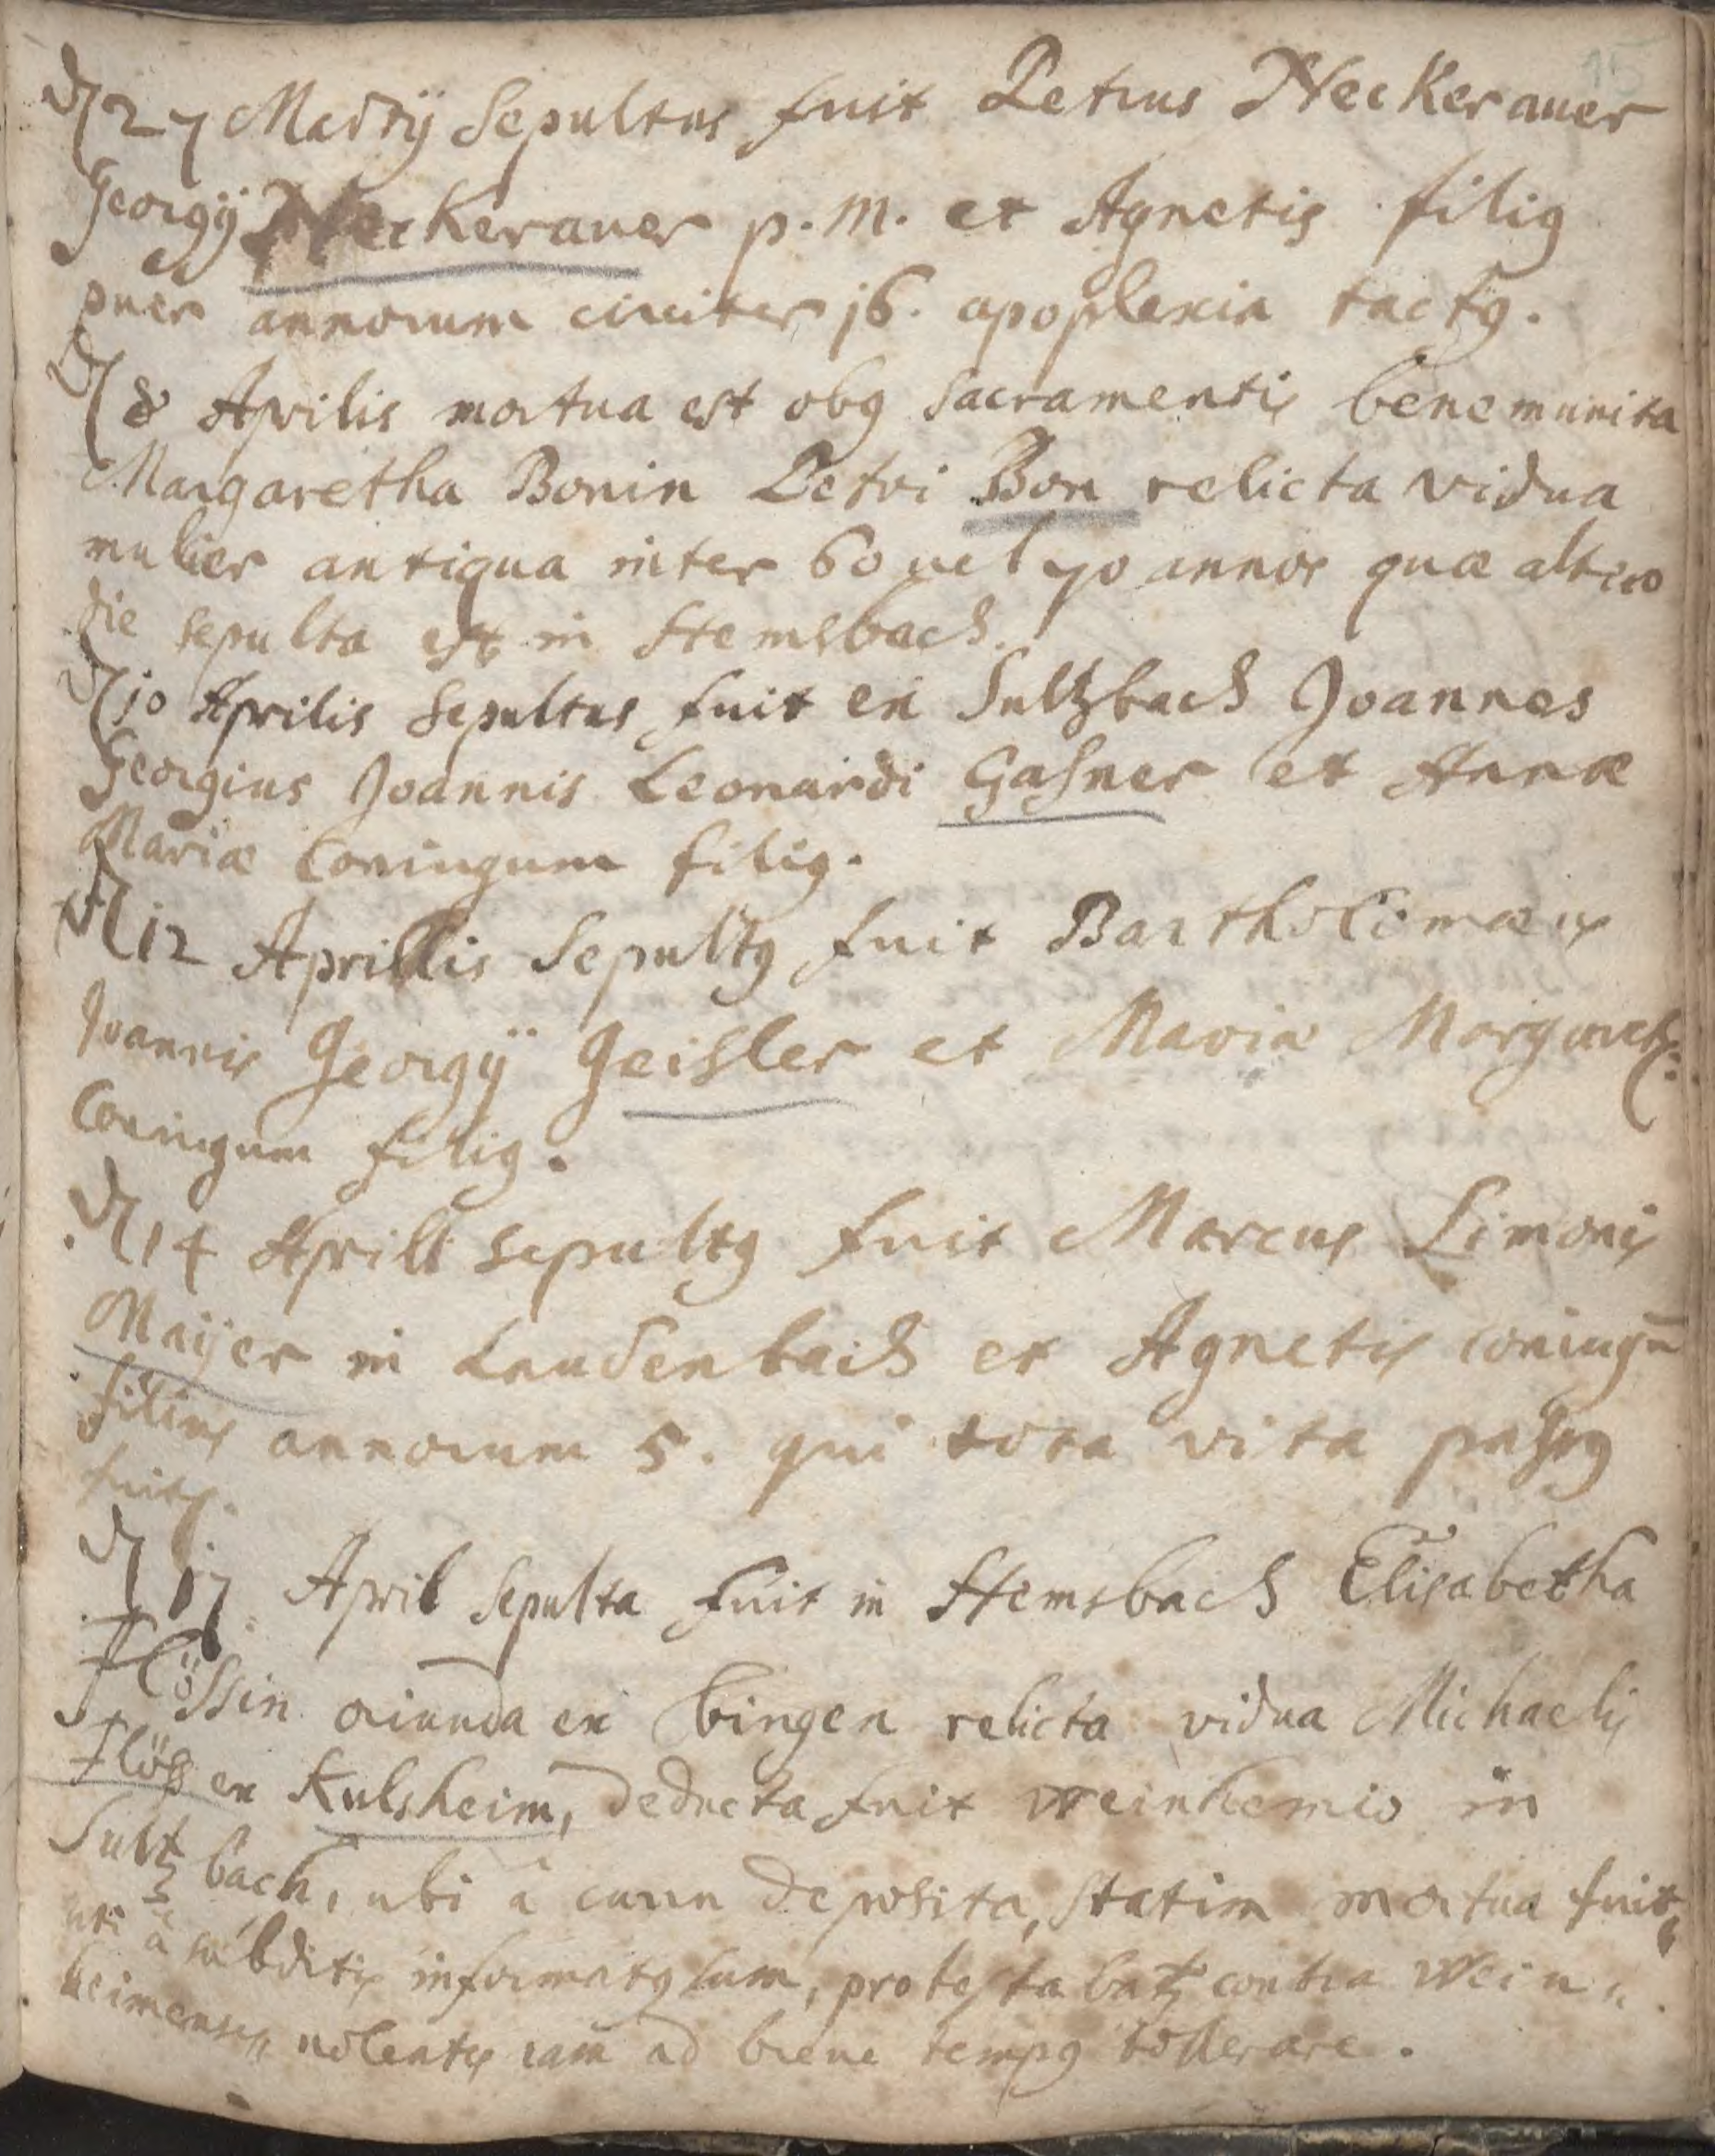 15
d 27 Martij Sepultus fuit Petrus Neckerauer
Georgij Neckerauer p. m. et Agnetis filiꝰ
puer annorum circiter j6. apoplexia tactꝰ.
d 8 Aprilis mortua est obꝰ sacramentis bene munita
Margaretha Bonin Petri Bon relicta vidua
mulier antiqua inter 60 uel 70 annos quæ altero
die sepulta est in Hemsbach.
d jo Aprilis Sepultus fuit ex Sultzbach Joannes
Georgius Joannis Leonardi Gaßner et Annæ
Mariæ Coniugum filiꝰ.
d 12 Aprillis Sepultꝰ fuit Bartholomæus
Joannis Georgij Geisler et Mariæ Margareth:
Coniugum filiꝰ.
d 14 Aprill sepultꝰ fuit Marcus Simonis
Maijer in Laudenbach et Agnetis coniugū
filius annorum 5. qui tota vita
fuit
d 17 April Sepulta fuit in Hemsbach Elisabetha
Flössin oriunda ex bingen relicta vidua Michaelis
Flöß ex Kulsheim, deducta fuit weinhemio in
Sultzbach, ubi à curru deposita, statim mortua fuit,
uti à subditis informatꝰ sum, protestabatr contra Wein„
heimenses nolentes eam ad breue tempꝰ tollerare.